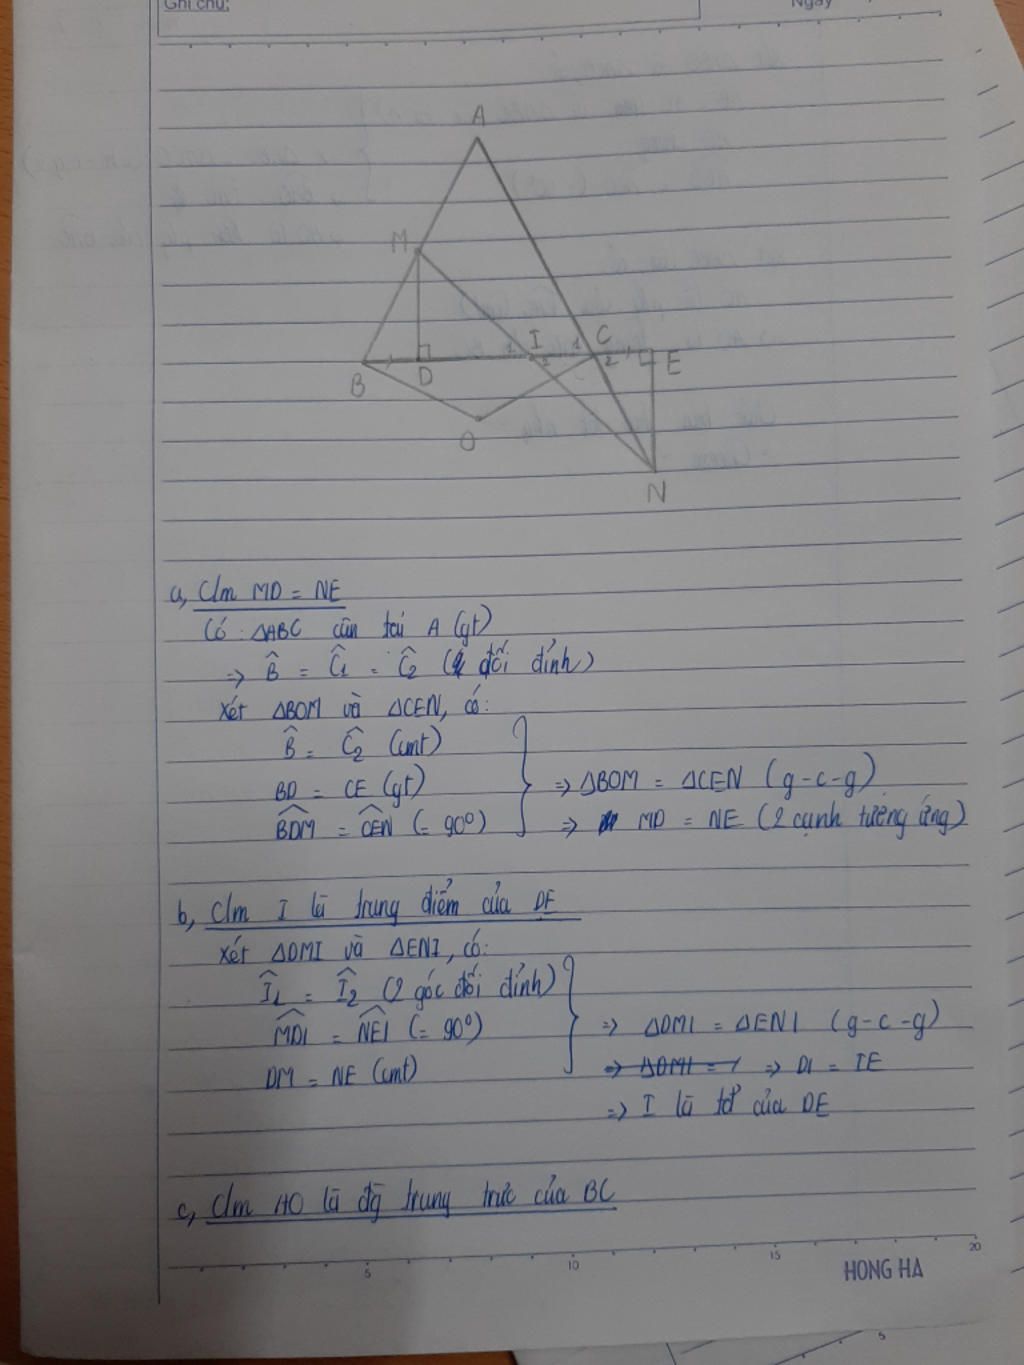 Ghi chú:
Ngày
A
M
I
C
1
2
1
2
B
D
E
O
N
a, C/m MD = NE
Có: ΔABC cân tại A (gt)
=> B̂ = Ĉ1 = Ĉ2 (2 đối đỉnh)
Xét ΔBOM và ΔCEN, có:
B̂ = Ĉ2 (cmt)
BD = CE (gt)
=> ΔBOM = ΔCEN (g-c-g)
BDM = CEN (= 90°)
=> MD = NE (2 cạnh tương ứng)
b, C/m I là trung điểm của DE
Xét ΔDMI và ΔENI, có:
Î1 = Î2 (2 góc đối đỉnh)
MDI = NEI (= 90°)
=> ΔDMI = ΔENI (g-c-g)
DM = NE (cmt)
=> ΔDMI = => DI = IE
=> I là tđ của DE
c, C/m AO là đg trung trực của BC
5
10
15
20
HONG HA
5